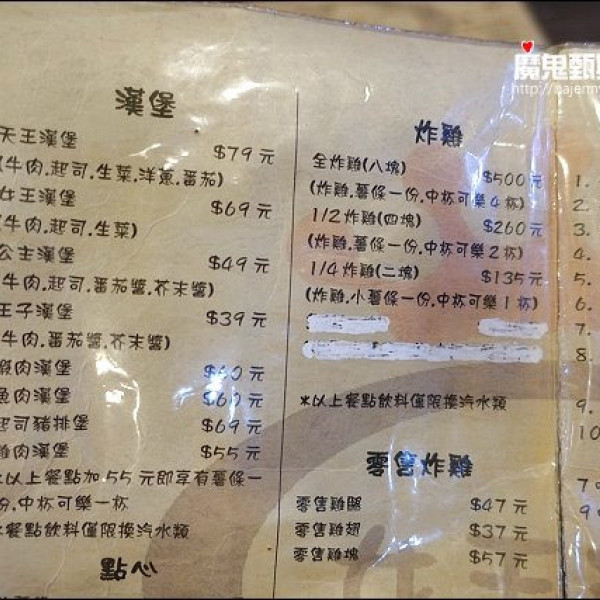 魔鬼甄
http://cajenny
漢堡
天王漢堡 $79元
(牛肉.起司.生菜.洋蔥.番茄)
女王漢堡 $69元
(牛肉.起司.生菜)
公主漢堡 $49元
牛肉.起司.番茄醬.芥末醬)
王子漢堡 $39元
牛肉.番茄醬.芥末醬)
蝦肉漢堡 $60元
魚肉漢堡 $60元
起司豬排堡 $69元
雞肉漢堡 $55元
※以上餐點加55元即享有薯條一
份.中杯可樂一杯
※餐點飲料僅限換汽水類
點心
炸雞
全炸雞(八塊) $500元
(炸雞.薯條一份.中杯可樂4杯)
1/2炸雞(四塊) $260元
(炸雞.薯條一份.中杯可樂2杯)
1/4炸雞(二塊) $135元
(炸雞.小薯條一份.中杯可樂1杯)
※以上餐點飲料僅限換汽水類
零售炸雞
零售雞腿 $47元
零售雞翅 $37元
零售雞塊 $57元
1.
2.
3.
4.
5.
6.
7.
8.
9.
10